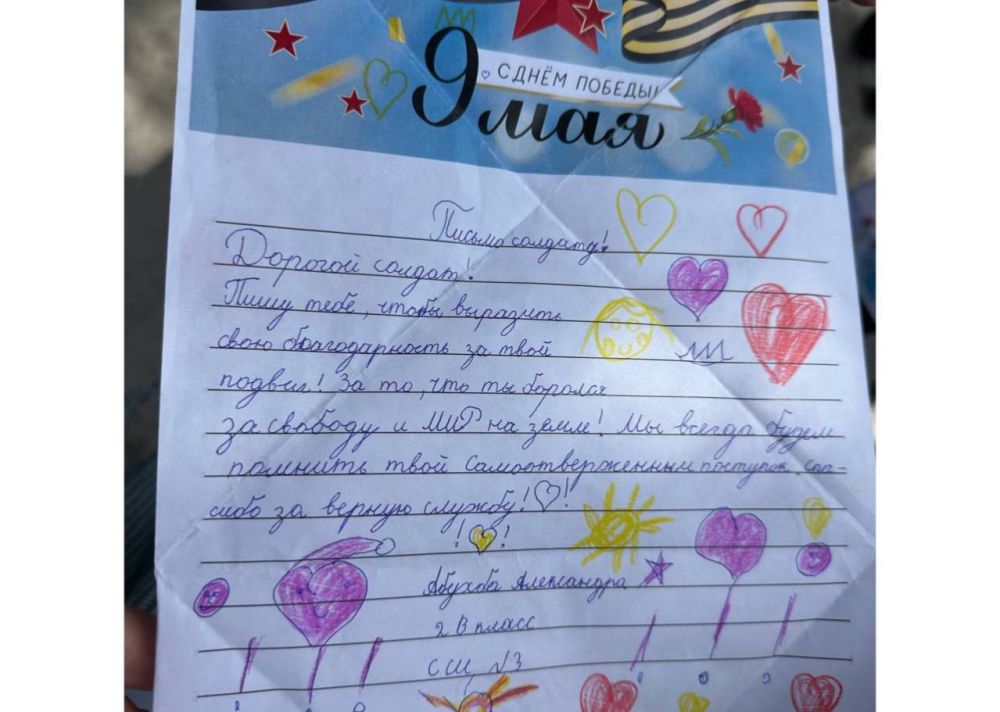 С ДНЁМ ПОБЕДЫ!
9 мая
Письмо солдату!
Дорогой солдат!
Пишу тебе, чтобы выразить
свою благодарность за твой
подвиг! За то, что ты боролся
за свободу и МИР на земле! Мы всегда будем
помнить твой самоотверженный поступок, спа-
сибо за верную службу!!
!!
Абухба Александра
2 В класс
СШ №3